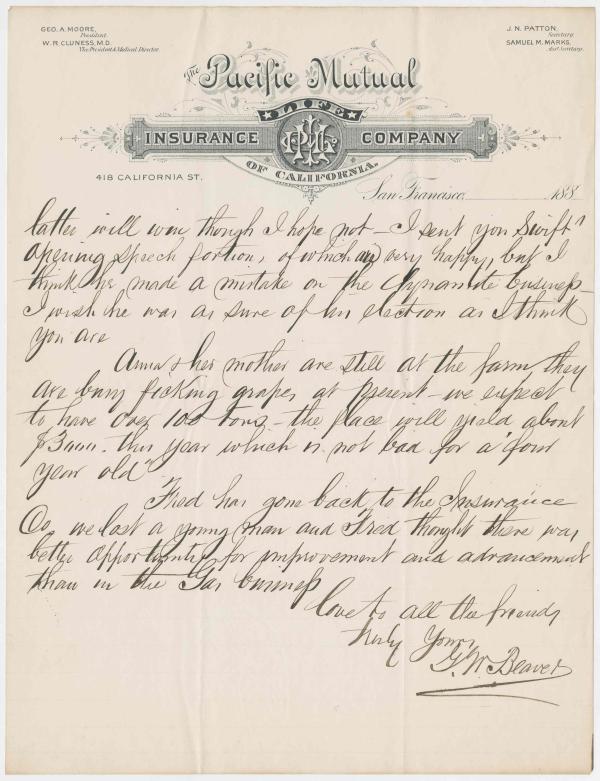 GEO. A. MOORE,
President.
W. R. CLUNESS, M.D.
Vice President & Medical Director.
J. N. PATTON,
Secretary.
SAMUEL M. MARKS,
Asst. Secretary.
The Pacific Mutual
LIFE
INSURANCE COMPANY
OF CALIFORNIA.
418 CALIFORNIA ST.
San Francisco, 188
latter will win though I hope not – I sent you Swift'
opening speech portions of which are very happy, but I
think he made a mistake on the dynamite business –
I wish he was as sure of his election as I think
you are
Anna & her mother are still at the farm, they
are busy picking grapes at present – we expect
to have over 100 tons – the place will yield about
$3000. this year which is not bad for a "four
year old"
Fred has gone back to the Insurance
Co, we lost a young man and Fred thought there was
better opportunity for improvement and advancement
than in the Gas business
Love to all the friends
Yours
G. W. Beaver